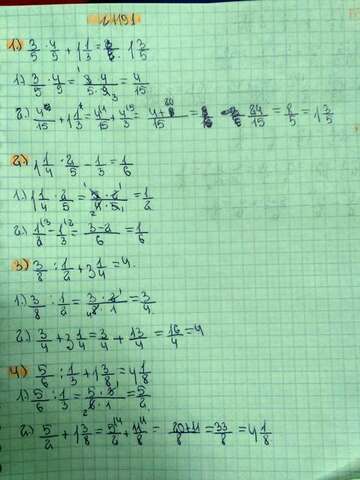 2498
1) 3/5 · 4/5 + 1 1/3 = 1 3/5
1) 3/5 · 4/5 = 3·4/5·5 3 = 4/15
2.) 4/15 + 1 1/3 = 4/15 + 4/3 = 4+20/15 = 24/15 = 8/5 = 1 3/5
2.) 1 1/4 · 2/5 - 1/3 = 1/6
1.) 1 1/4 · 2/5 = 5·2/4·5 = 1/2
2) 1/2 - 1/3 = 3-2/6 = 1/6
3) 3/8 : 1/2 + 3 1/4 = 4.
1.) 3/8 : 1/2 = 3·2/8·1 = 3/4
2.) 3/4 + 3 1/4 = 3/4 + 13/4 = 16/4 = 4
4) 5/6 : 1/3 + 1 3/8 = 4 1/8
1) 5/6 : 1/3 = 5·3/6·1 = 5/2
2) 5/2 + 1 3/8 = 5/2 + 11/8 = 20+11/8 = 33/8 = 4 1/8